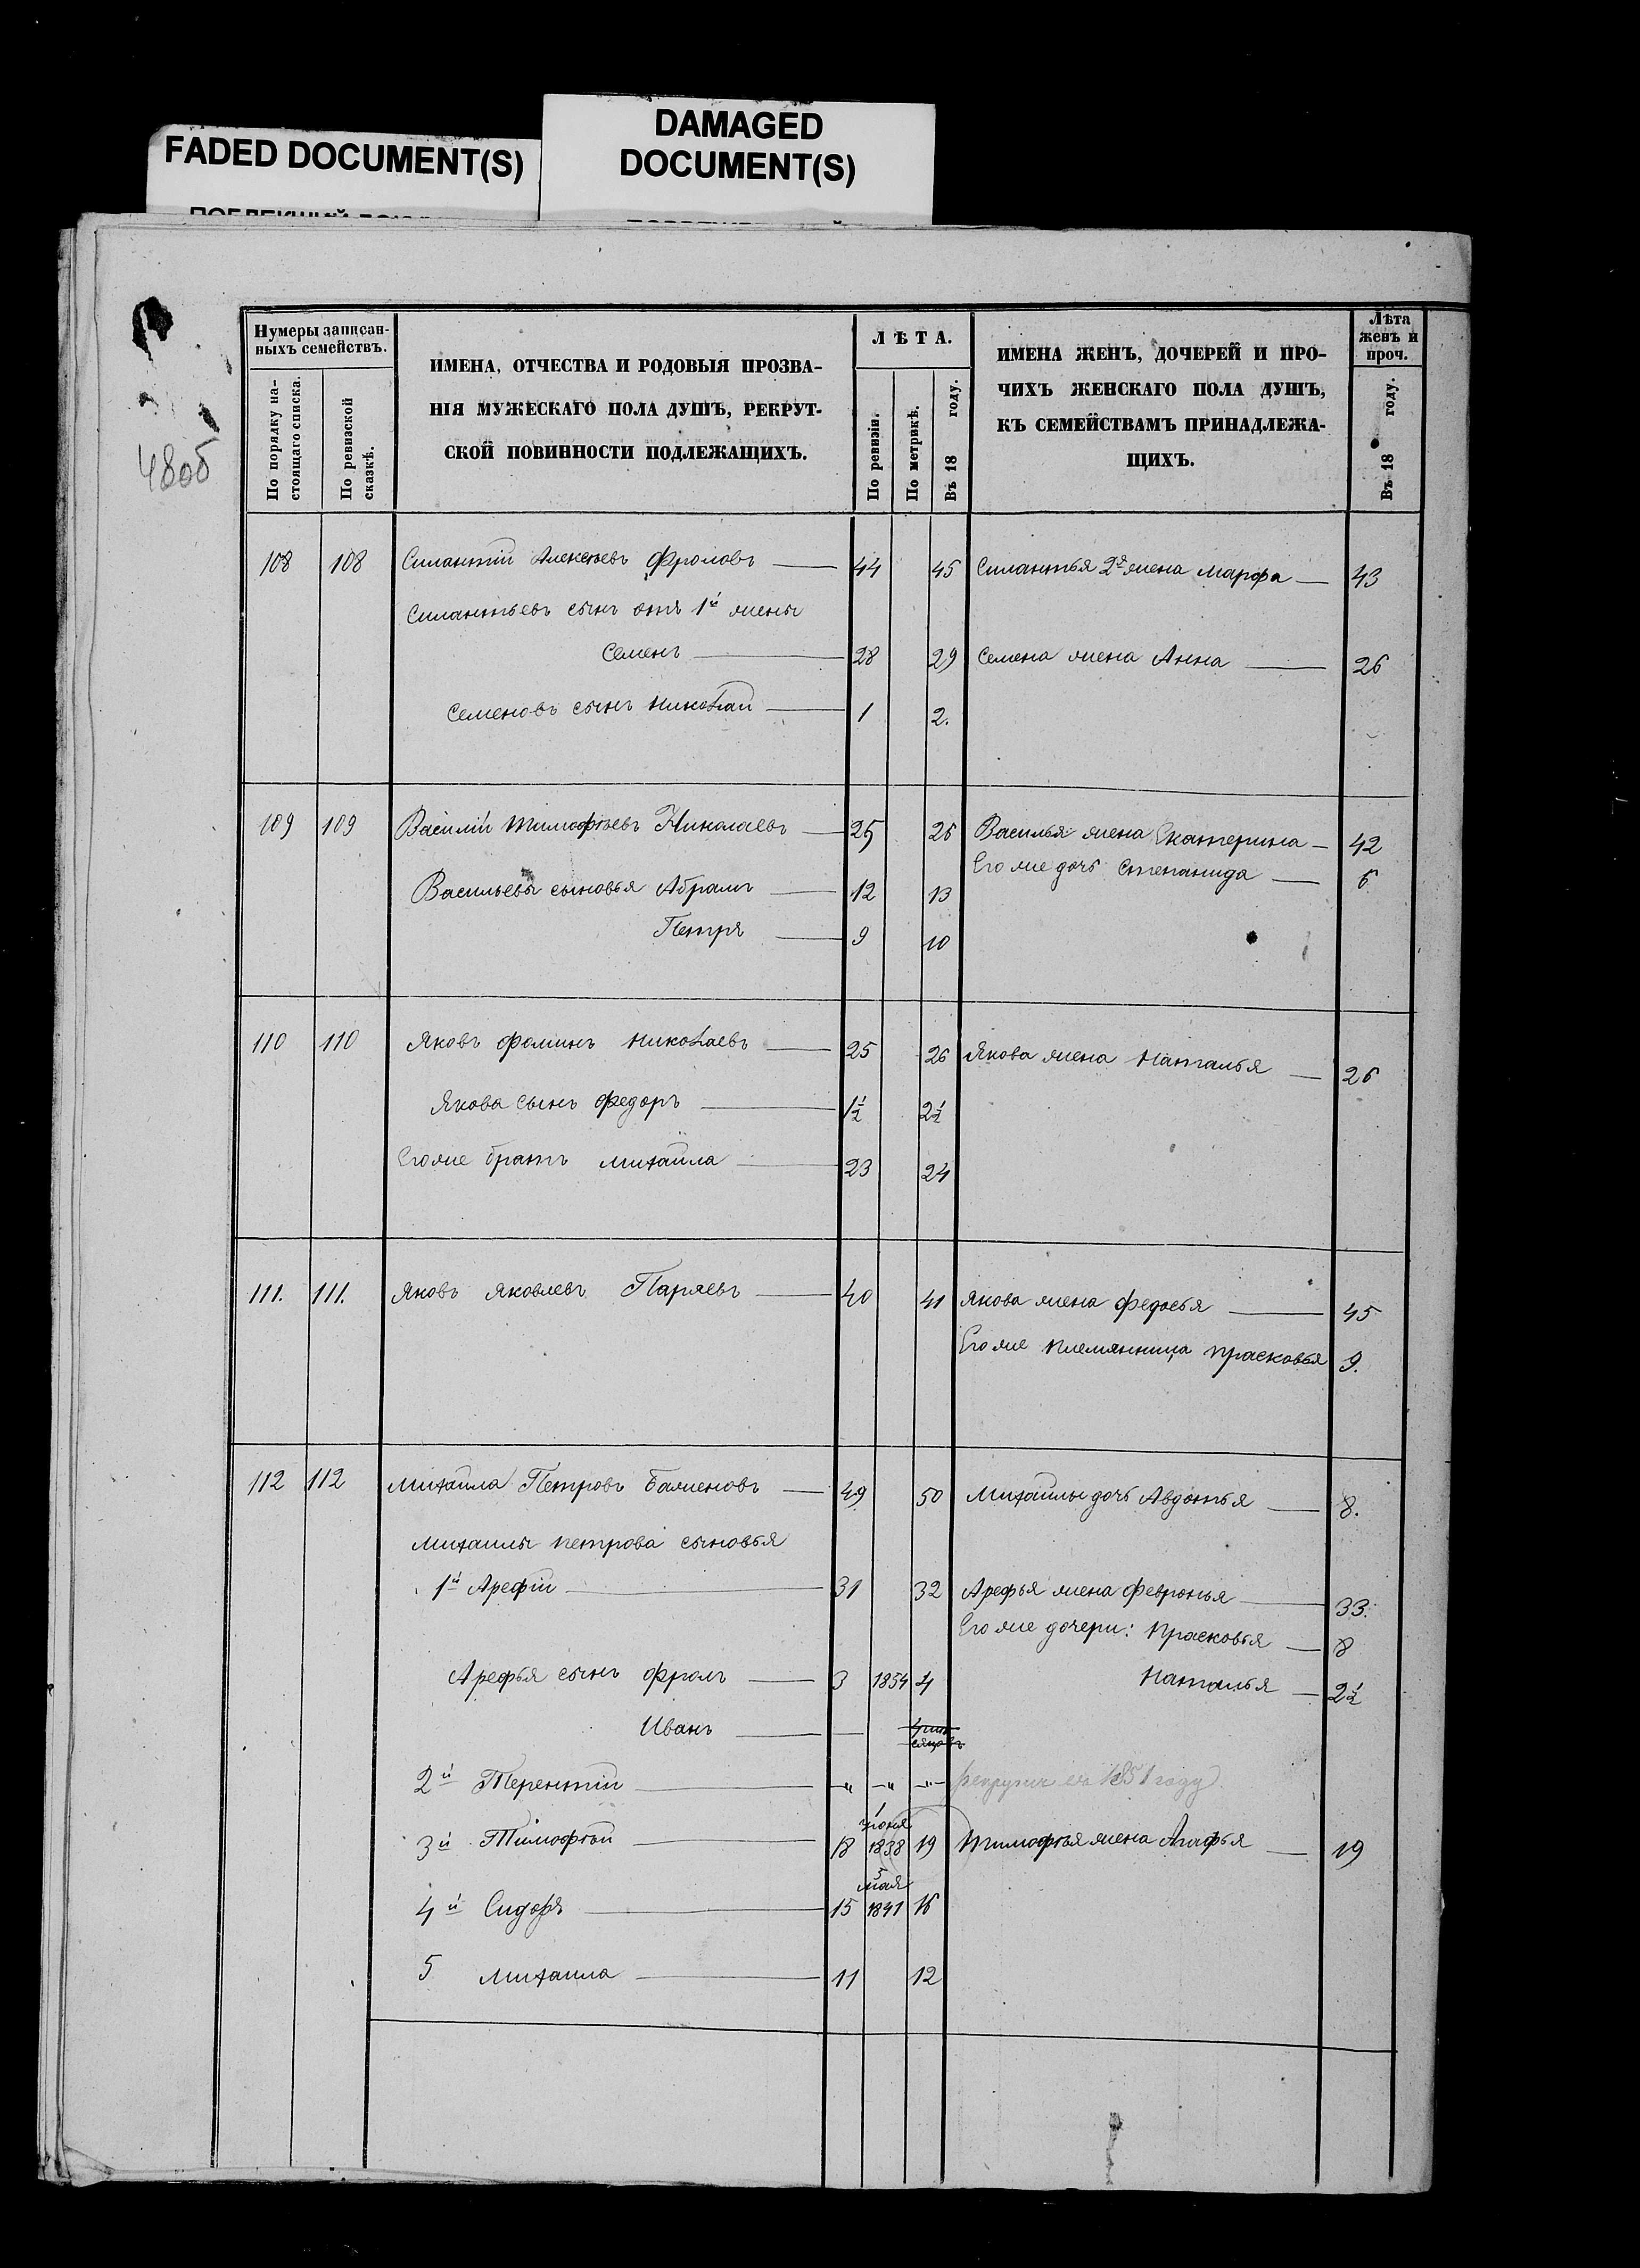 FADED DOCUMENT(S)
DAMAGED
DOCUMENT(S)
48об
Нумеры записан-
ныхъ семействъ.
По порядку на-
стоящаго списка.
По ревизской
сказкѣ.
ИМЕНА, ОТЧЕСТВА И РОДОВЫЯ ПРОЗВА-
НІЯ МУЖЕСКАГО ПОЛА ДУШЪ, РЕКРУТ-
СКОЙ ПОВИННОСТИ ПОДЛЕЖАЩИХЪ.
ЛѢТА.
По ревизіи.
По метрикѣ.
Въ 18 году.
ИМЕНА ЖЕНЪ, ДОЧЕРЕЙ И ПРО-
ЧИХЪ ЖЕНСКАГО ПОЛА ДУШЪ,
КЪ СЕМЕЙСТВАМЪ ПРИНАДЛЕЖА-
ЩИХЪ.
Лѣта
женъ и
проч.
Въ 18 году.
108 108 Силантій Алексѣевъ Фроловъ 44 45 Силантья 2я жена Марфа 43
Силантьевъ сынъ отъ 1й жены
Семенъ 28 29 Семена жена Анна 26
Семеновъ сынъ Николай 1 2.
109 109 Василій Тимофѣевъ Николаевъ 25 26 Василья жена Екатерина 42
Его же дочь Степанида 6
Васильевы сыновья Абрамъ 12 13
Петръ 9 10
110 110 Яковъ Фоминъ Николаевъ 25 26 Якова жена Наталья 26
Якова сынъ Федоръ 1½ 2½
Его же братъ Михайла 23 24
111. 111. Яковъ Яковлевъ Паряевъ 40 41 Якова жена Федосья 45
Его же племянница Прасковья 9.
112 112 Михайла Петровъ Баженовъ 49 50 Михайлы дочь Авдотья 8.
Михайлы Петрова сыновья
1й Арефій 31 32 Арефья жена Февронья 33.
Его же дочери: Прасковья 8
Арефья сынъ Фролъ 3 1854 4 Наталья 2½
Иванъ — 4 мѣ-
сяцовъ
2й Терентій " " " рекрутъ въ 1851 году
3й Тимофѣй 18 1 июня 1838 19 Тимофѣя жена Агафья 19
4й Сидоръ 15 5 мая 1841 16
5 Михаила 11 12